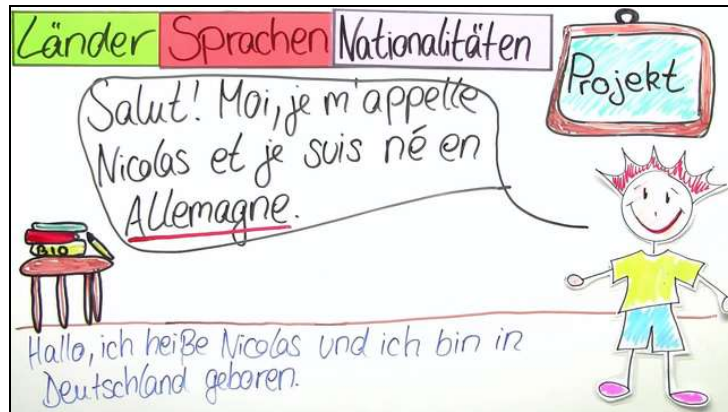 Länder Sprachen Nationalitäten
Projekt
Salut! Moi, je m'appelle
Nicolas et je suis né en
Allemagne.
BIO
Hallo, ich heiße Nicolas und ich bin in
Deutschland geboren.